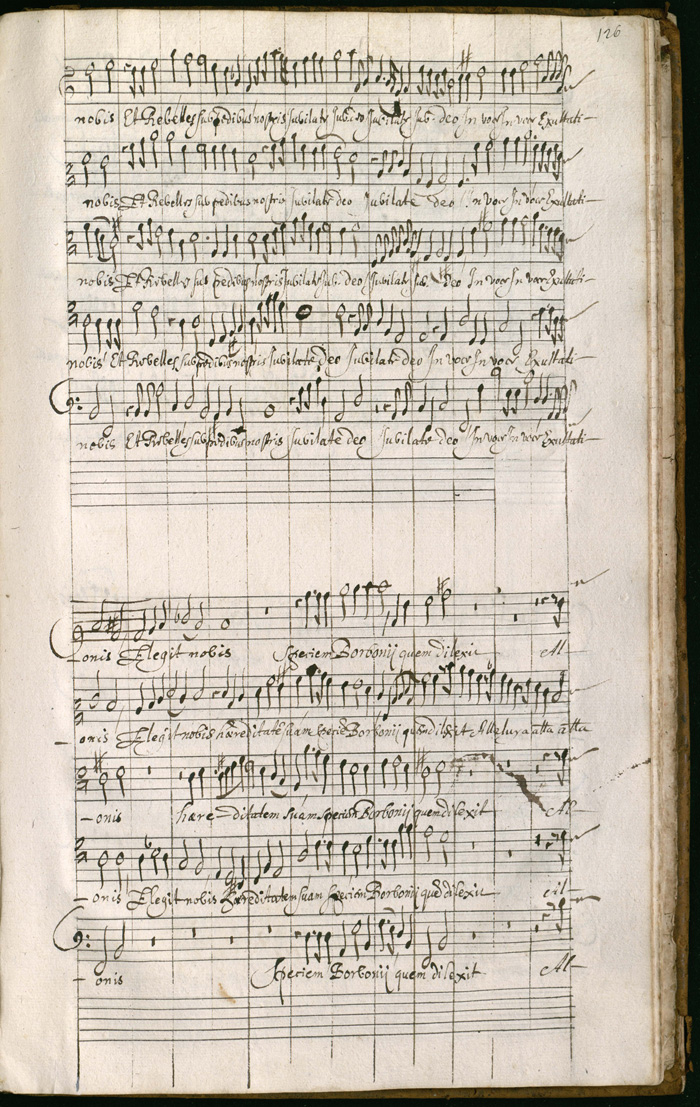 126
nobis Et Rebelles sub pedibus nostris Jubilate Jubilate Jub. deo In voce In voce Exultati-
nobis Et Rebelles sub pedibus nostris Jubilate deo Jubilate deo In voce In voce Exultati-
nobis Et Rebelles sub pedibus nostris Jubilate Jub. deo Jubilate Jub. deo In voce In voce Exultati-
nobis Et Rebelles sub pedibus nostris Jubilate deo Jubilate deo In voce In voce Exultati-
nobis Et Rebelles sub pedibus nostris Jubilate deo Jubilate deo In voce In voce Exultati-
-onis Elegit nobis Speciem Borbonij quem dilexit Al-
-onis Elegit nobis hæreditatē suam speciē Borbonij quem dilexit Alleluya alla alla
-onis hære-ditatem suam speciem Borbonij quem dilexit Al-
-onis Elegit nobis hæreditatem suam speciem Borbonij quē dilexit al-
-onis Speciem Borbonij quem dilexit Al-